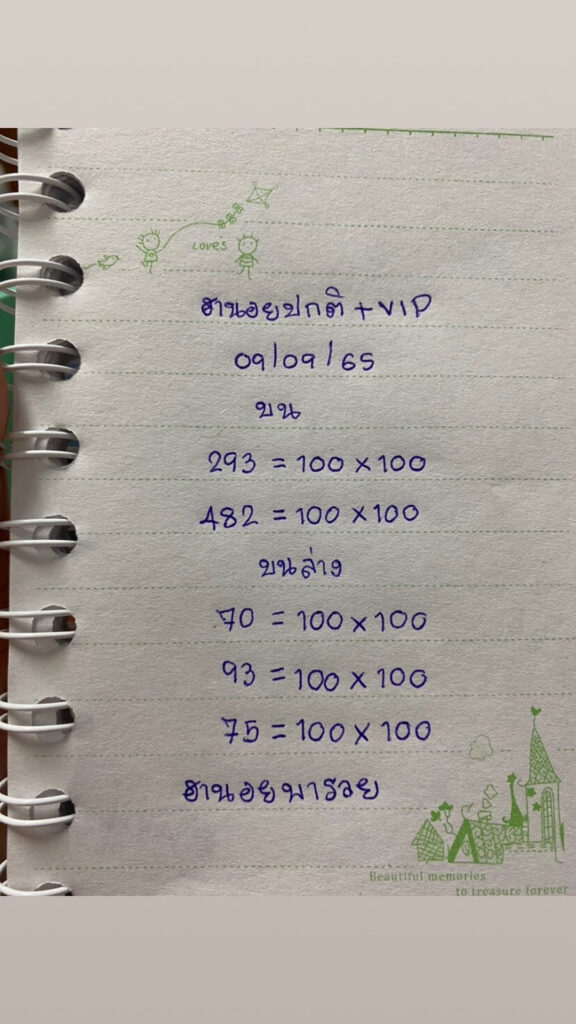 Loves
ฮานอยปกติ + VIP
09/09/65
บน
293 = 100 × 100
482 = 100 × 100
บนล่าง
70 = 100 × 100
93 = 100 × 100
75 = 100 × 100
ฮานอยพารวย
Beautiful memories
to treasure forever